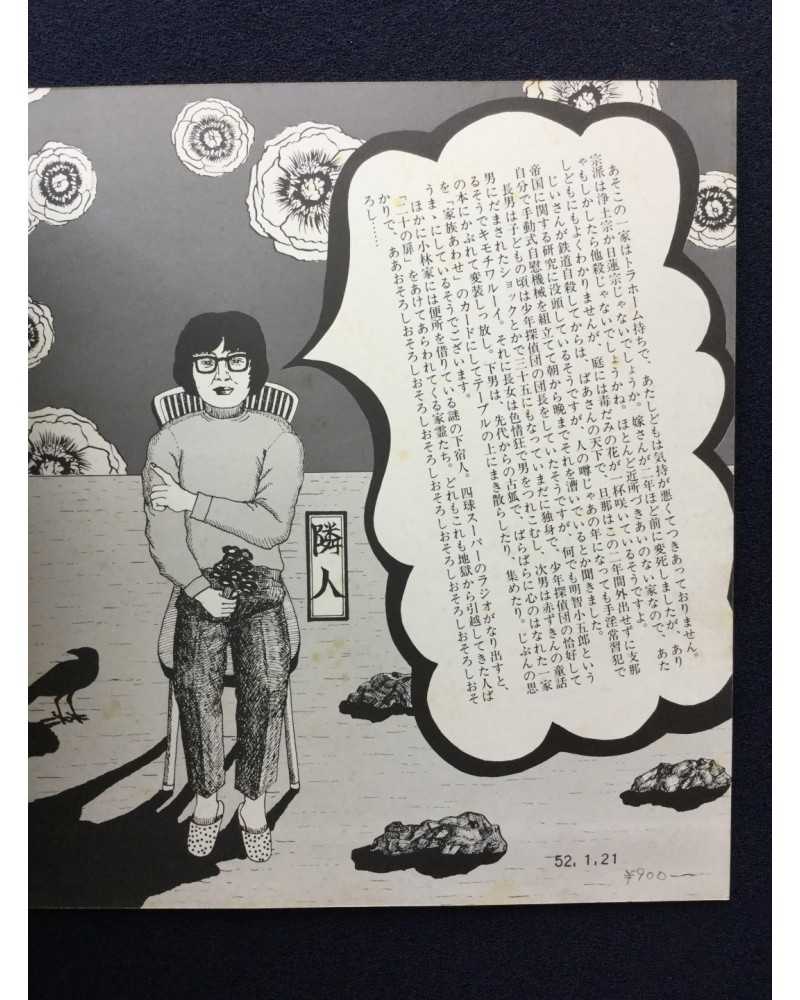 あそこの一家はトラホーム持ちで、あたしどもは気持が悪くてつきあっておりません。
宗派は浄土宗か日蓮宗じゃないでしょうか。嫁さんが二年ほど前に変死しましたが、あり
ゃもしかしたら他殺じゃないでしょうかね。ほとんど近所づきあいのない家なので、あた
しどもにもよくわかりませんが、庭には毒だみの花が一杯咲いているそうですよ。
じいさんが鉄道自殺してからは、ばあさんの天下で、旦那はこの二年間外出せずに支那
帝国に関する研究に没頭しているそうですが、人の噂じゃあの年になっても手淫常習犯で
自分で手動式自慰機械を組立てて朝から晩までそれを漕いでいるとか聞きました。
長男は子どもの頃は少年探偵団の団長をしていたそうですが、何でも明智小五郎という
男にだまされたショックとかで三十五にもなっていまだに独身で、少年探偵団の恰好して
るそうでキモチワルーイ。それに長女は色情狂で男をつれこむし、次男は赤ずきんの童話
の本にかぶれて変装しっ放し。下男は、先代からの古狐で、ばらばらに心のはなれた一家
を、「家族あわせ」のカードにしてテーブルの上にまき散らしたり、集めたり。じぶんの思
うま、にしているそうでございます。
ほかに小林家には便所を借りている謎の下宿人。四球スーパーのラジオがなり出すと、
「二十の扉」をあけてあらわれてくる家霊たち。どれもこれも地獄から引越してきた人ば
かりで、ああおそろしおそろしおそろしおそろしおそろしおそろしおそろしおそろしおそ
ろし……
隣人
52.1.21
¥900―